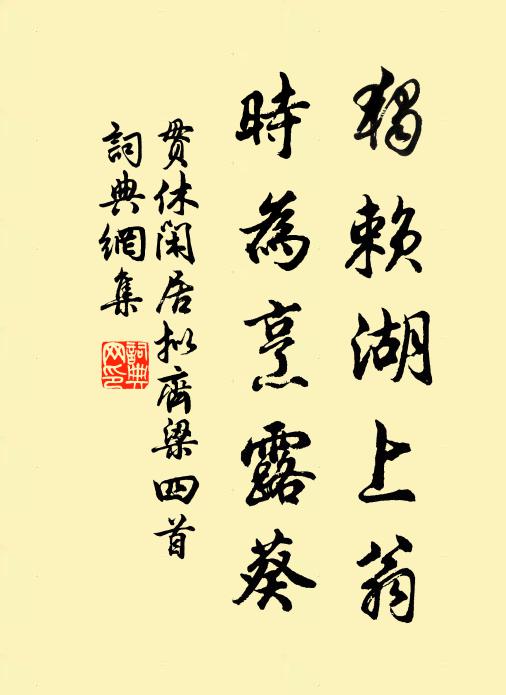 獨賴湖上翁
時為烹露葵
貫休閑居拟齊梁四首
詞典網集
詞典网印